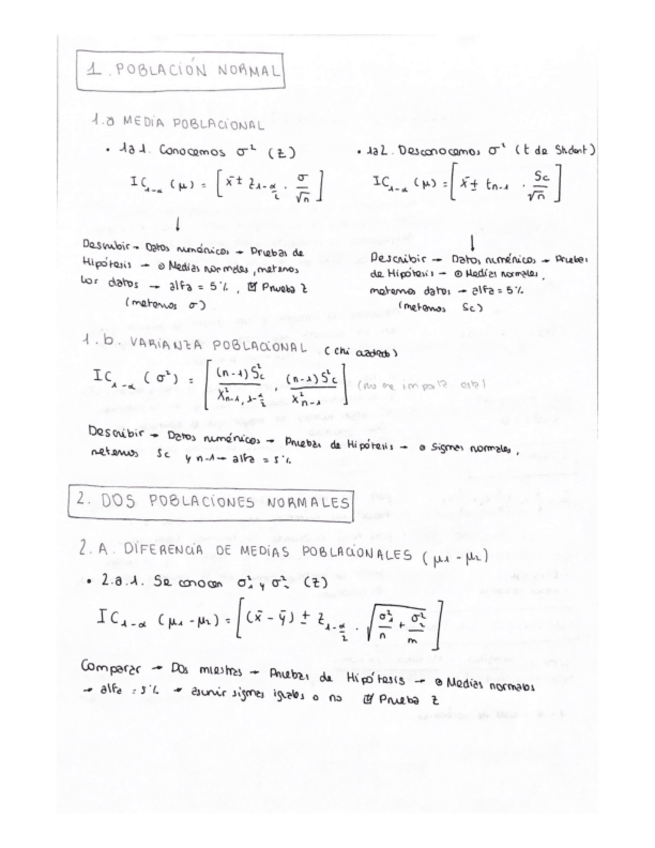 1. POBLACIÓN NORMAL
1.a MEDIA POBLACIONAL
• 1a1. Conocemos σ² (Z)
IC₁₋α (μ) = [x̄ ± z₁₋α/₂ · σ/√n]
↓
Describir → Datos numéricos → Pruebas de
Hipótesis → ⊙ Medias normales, metemos
los datos → alfa = 5%, ☑ Prueba Z
(metemos σ)
• 1a2. Desconocemos σ² (t de Student)
IC₁₋α (μ) = [x̄ ± tₙ₋₁ · Sc/√n]
↓
Describir → Datos numéricos → Pruebas
de Hipótesis → ⊙ Medias normales,
metemos datos → alfa = 5%
(metemos Sc)
1.b. VARIANZA POBLACIONAL (chi cuadrado)
IC₁₋α (σ²) = [(n-1)S²c / X²ₙ₋₁,₁₋α/₂ , (n-1)S²c / X²ₙ₋₁] (no me importa
Describir → Datos numéricos → Pruebas de Hipótesis → ⊙ Sigmas normales,
metemos Sc y n-1 → alfa = 5%
2. DOS POBLACIONES NORMALES
2.A. DIFERENCIA DE MEDIAS POBLACIONALES (μ₁ - μ₂)
• 2.a.1. Se conocen σ²₁ y σ²₂ (Z)
IC₁₋α (μ₁ - μ₂) = [(x̄ - ȳ) ± z₁₋α/₂ · √(σ²₁/n + σ²₂/m)]
Comparar → Dos muestras → Pruebas de Hipótesis → ⊙ Medias normales
→ alfa = 5% → asumir sigmas iguales o no ☑ Prueba Z